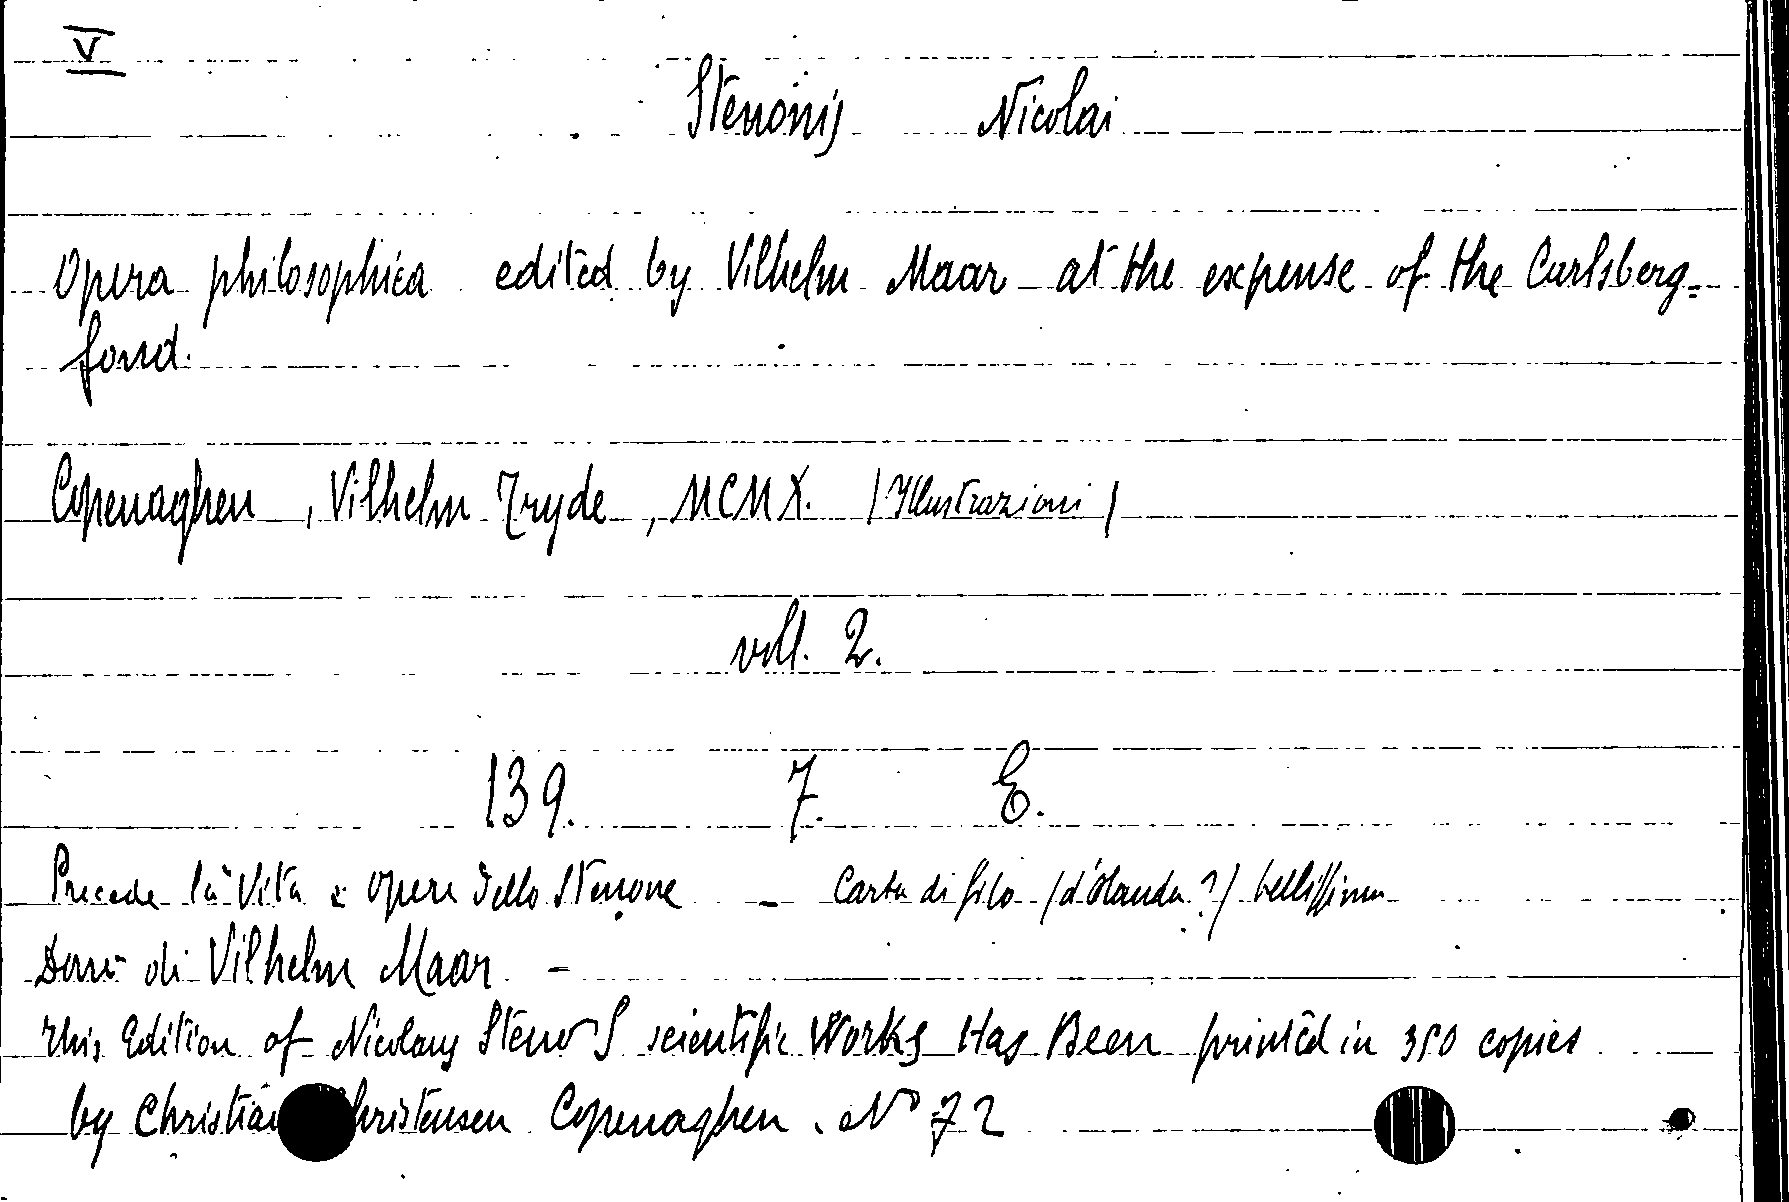 V
Stenonis Nicolai
Opera philosophica edited by Vilhelm Maar at the expense of the Carlsberg=
fond.
Copenaghen, Vilhelm Tryde, MCMX. (Illustrazioni)
voll. 2.
139. 7. E.
Precede la Vita e opere dello Stenone - Carta di filo (d'Olanda?) bellissima
Dono di Vilhelm Maar -
This Edition of Nicolaus Steno S scientific Works Has Been printed in 350 copies
by Christian Christensen Copenaghen. N° 72